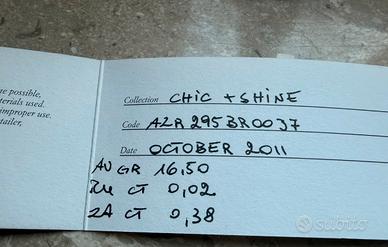 e possible,
terials used.
improper use.
etailer,
Collection CHIC + SHINE
Code AZR295BR0037
Date OCTOBER 2011
AU GR 16,50
CT 0,02
ZA CT 0,38
subito